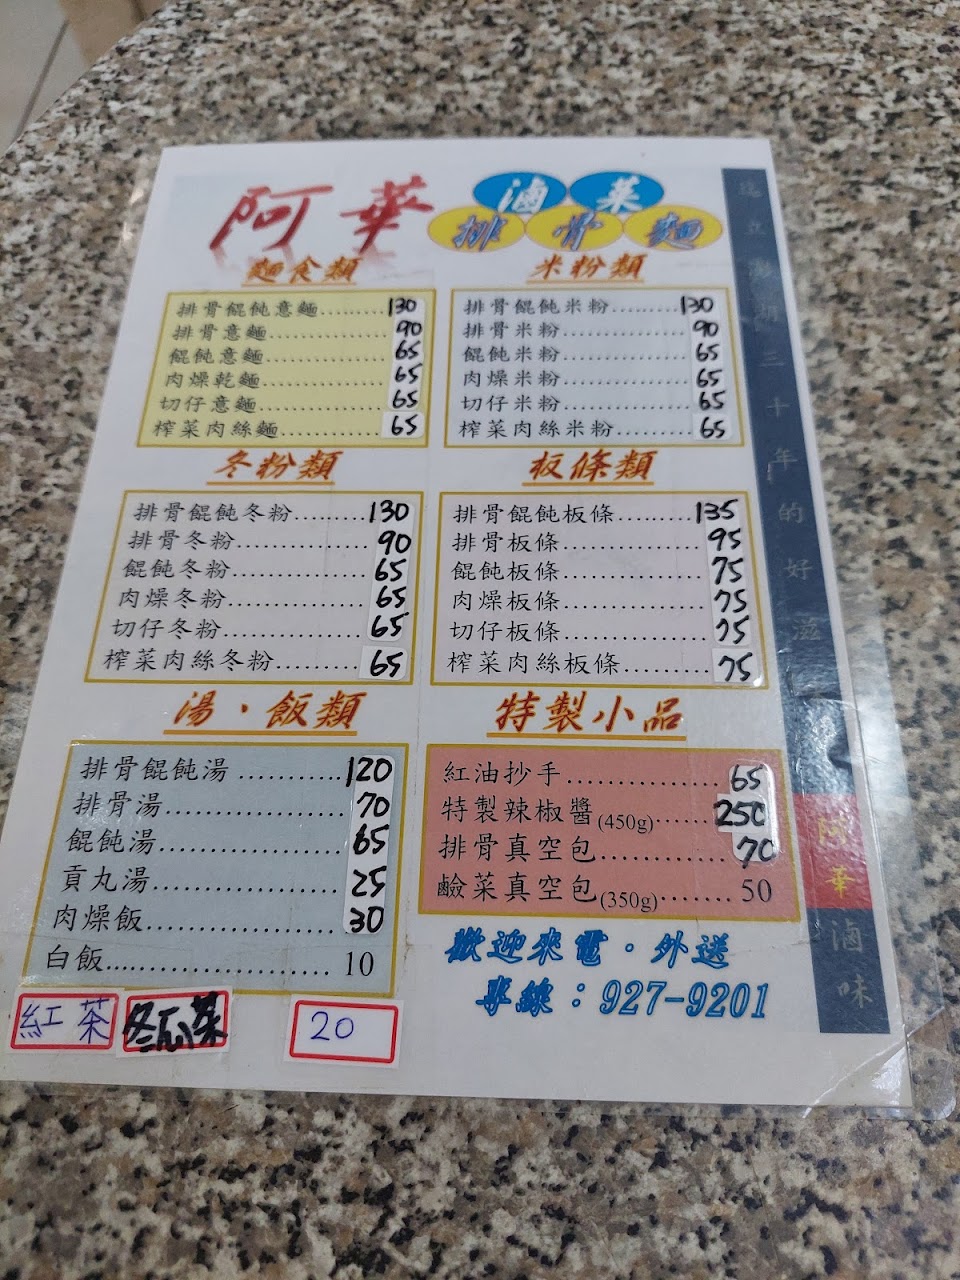 阿華
滷菜
排骨麵
麵食類
排骨餛飩意麵.........130
排骨意麵................90
餛飩意麵................65
肉燥乾麵................65
切仔意麵................65
榨菜肉絲麵.............65
米粉類
排骨餛飩米粉.........130
排骨米粉................90
餛飩米粉................65
肉燥米粉................65
切仔米粉................65
榨菜肉絲米粉.........65
冬粉類
排骨餛飩冬粉.........130
排骨冬粉................90
餛飩冬粉................65
肉燥冬粉................65
切仔冬粉................65
榨菜肉絲冬粉.........65
板條類
排骨餛飩板條.........135
排骨板條................95
餛飩板條................75
肉燥板條................75
切仔板條................75
榨菜肉絲板條.........75
湯・飯類
排骨餛飩湯............120
排骨湯...................70
餛飩湯...................65
貢丸湯...................25
肉燥飯...................30
白飯......................10
特製小品
紅油抄手................65
特製辣椒醬(450g)......250
排骨真空包.............70
鹼菜真空包(350g).......50
歡迎來電・外送
專線：927-9201
紅茶 冬瓜茶 20
立澎湖三十年的好滋
阿華滷味